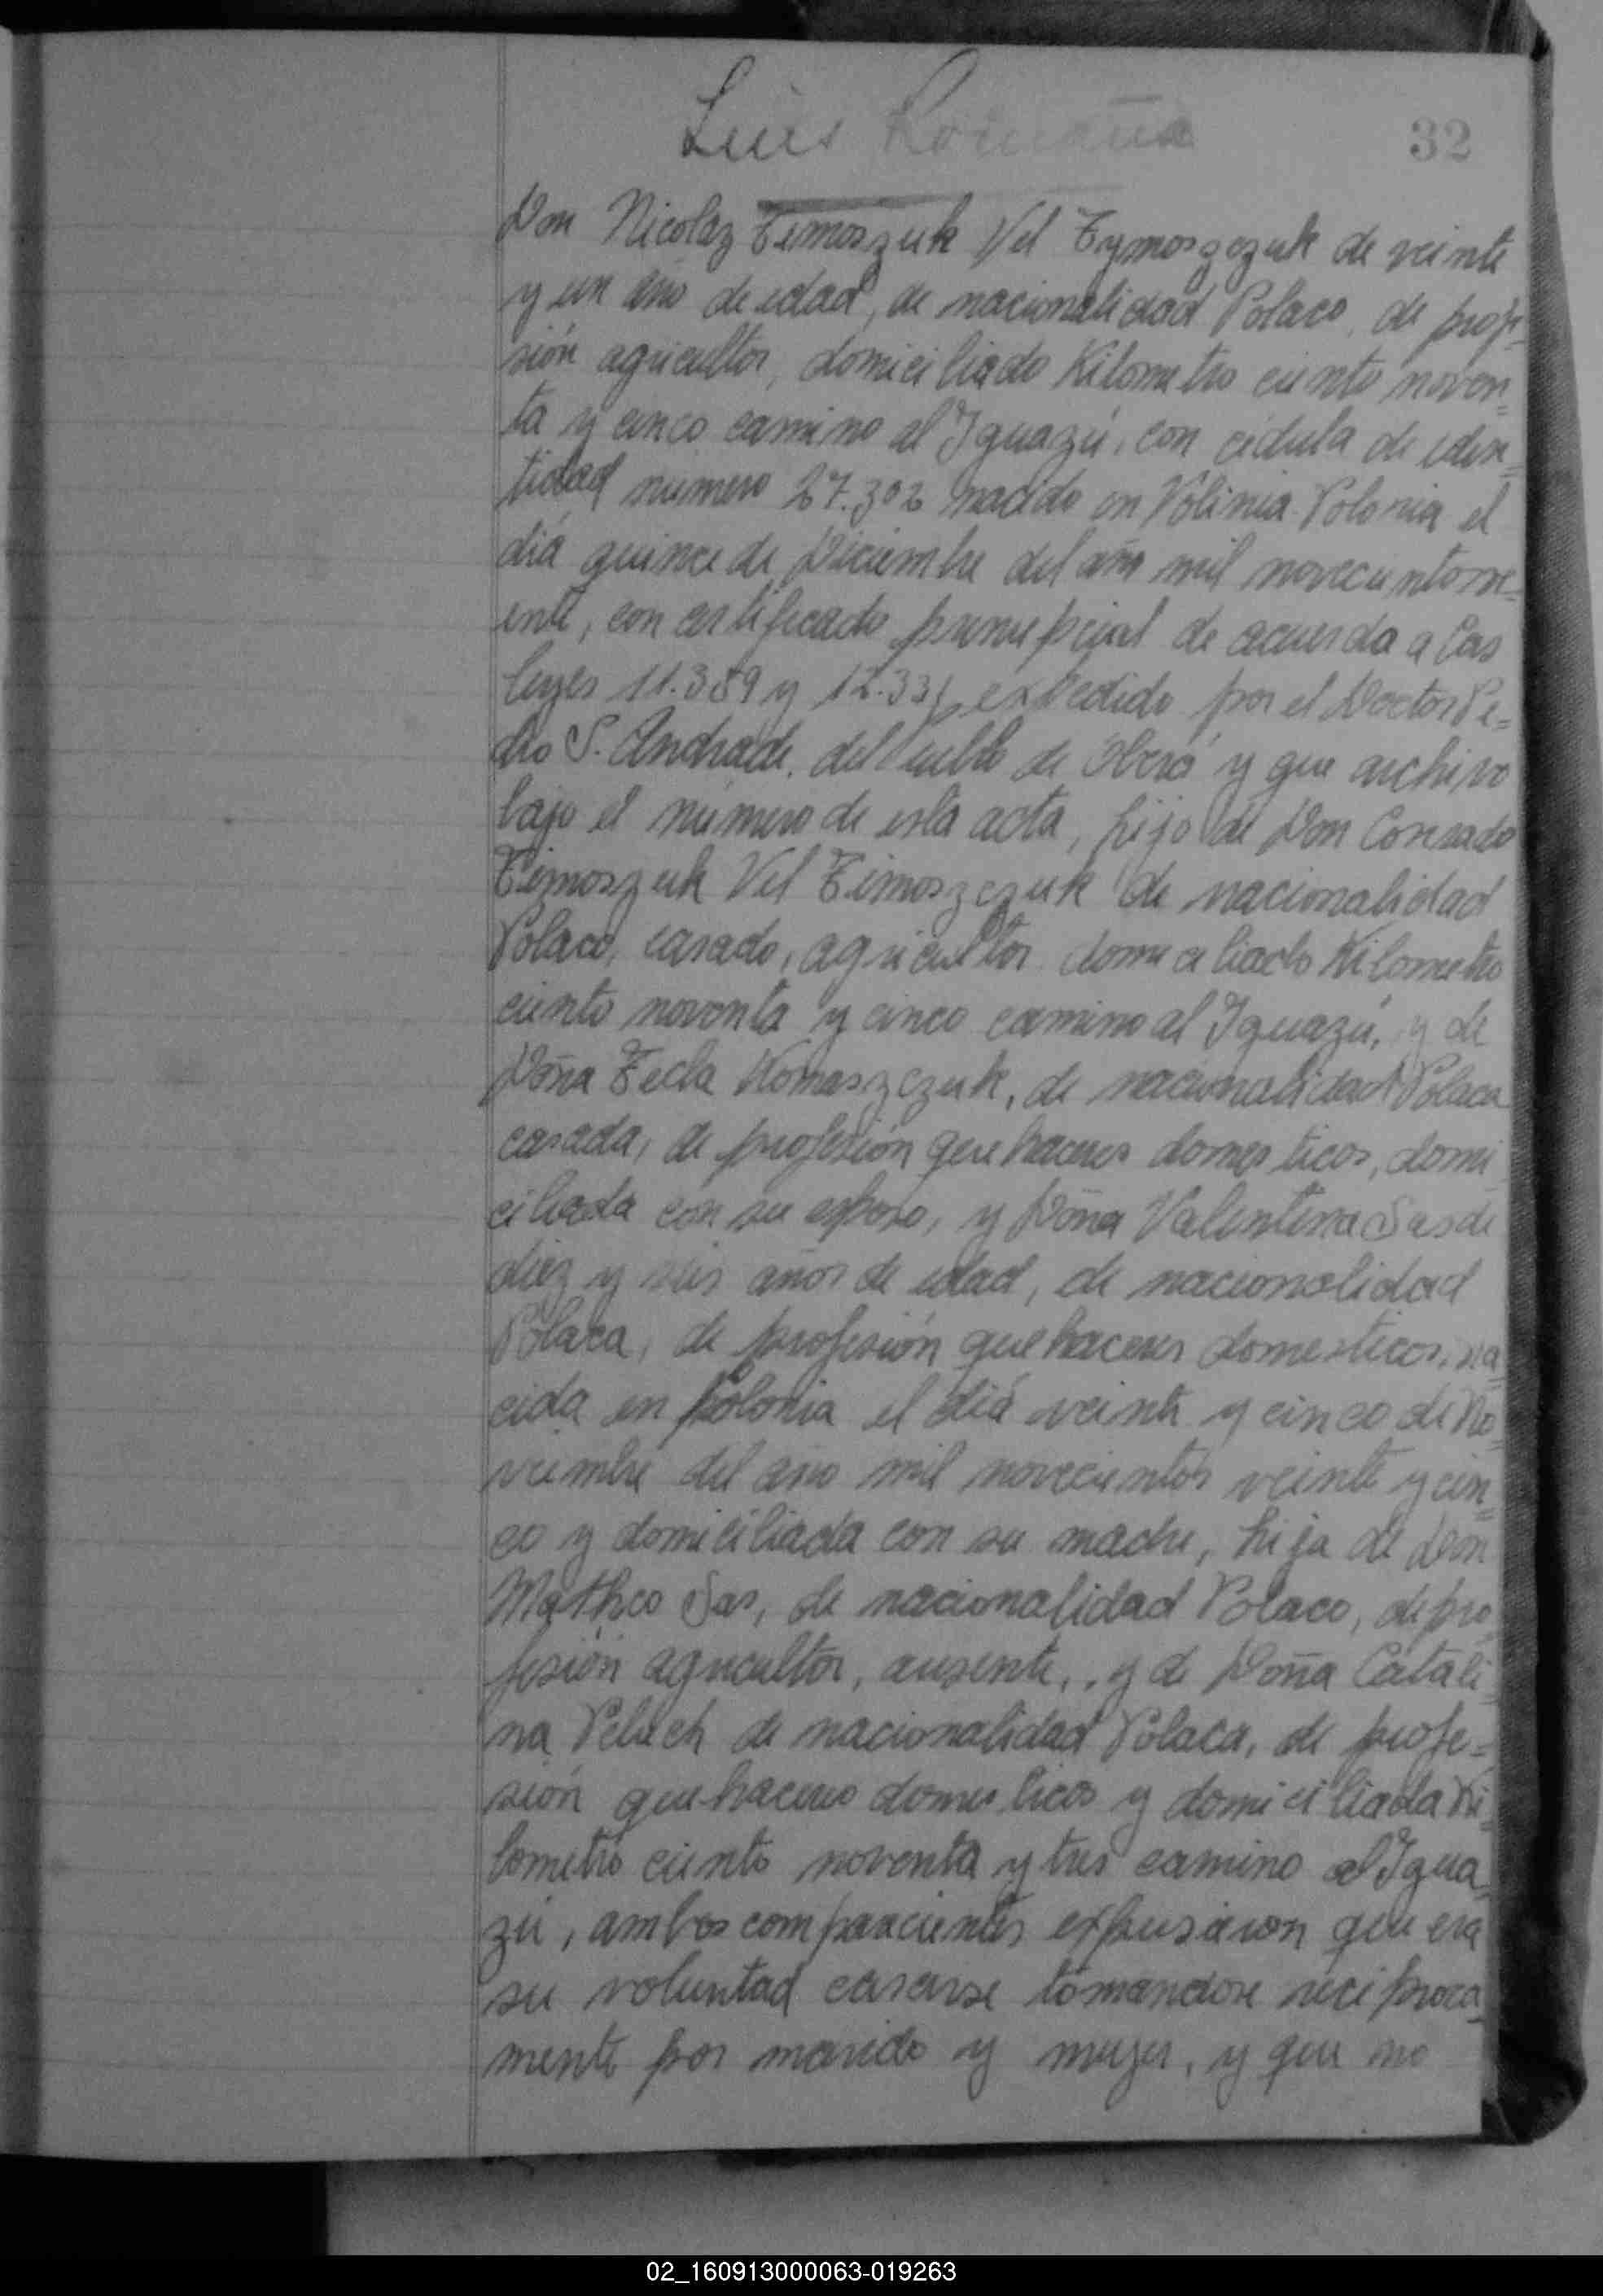 Luis
32
Don Nicolaz Timoszuk Vel Tymoszczuk de veinte
y un año de edad, de nacionalidad Polaco, de profe-
sión agricultor, domiciliado Kilometro ciento noven-
ta y cinco camino al Iguazú, con cédula de iden-
tidad numero 27.302 nacido en Volinia Polonia el
diá quince de Diciembre del año mil novecientos ve-
inte, con certificado prenupcial de acuerdo a las
leyes 11.359 y 12.331, expedido por el Doctor Pe-
dro S. Andrade, del Pueblo de Oberá y que archivo
bajo el número de esta acta, hijo de Don Conrado
Timoszuk Vel Timoszczuk de nacionalidad
Polaco, casado, agricultor domiciliado Kilometro
ciento noventa y cinco camino al Iguazú, y de
Doña Tecla Komaszczuk, de nacionalidad Polaca
casada, de profesión quehaceres domesticos, domi
ciliada con su esposo, y Doña Valentina Sas de
diez y seis años de edad, de nacionalidad
Polaca, de profesión quehaceres domesticos, na-
cida en Polonia el diá veinte y cinco de No-
viembre del año mil novecientos veinte y cin-
co y domiciliada con su madre, hija de Don
Matheo Sas, de nacionalidad Polaco, de pro-
fesión agricultor, ausente, y de Doña Catali-
na Peluch de nacionalidad Polaca, de profe-
sión quehaceres domesticos y domiciliada Ki-
lometro ciento noventa y tres camino al Igua-
zú, ambos comparecientes expusieron que era
su voluntad casarse tomandose reciproca-
mente por marido y mujer, y que no
02_160913000063-019263